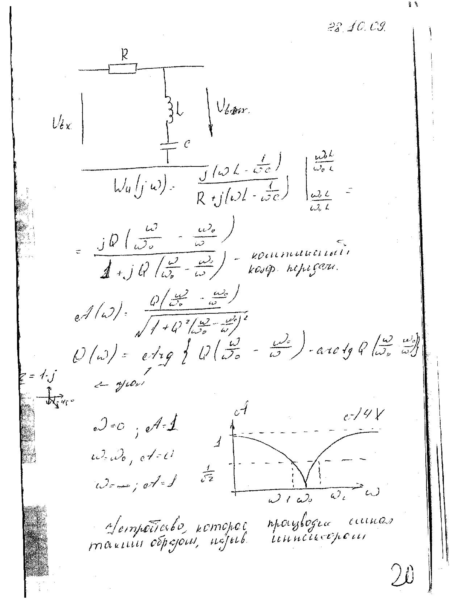 28.10.09.
R
L
C
Uвх
Uвых.
Wu(jω) = j(ωL - 1/ωC) / R + j(ωL - 1/ωC) | ω₀L/ω₀L =
= jQ(ω/ω₀ - ω₀/ω) / 1 + jQ(ω/ω₀ - ω₀/ω) - комплексный
коэф. передачи.
A(ω) = Q(ω/ω₀ - ω₀/ω) / √(1 + Q²(ω/ω₀ - ω₀/ω)²)
(ω) = Arg { Q(ω/ω₀ - ω₀/ω) - arctg Q(ω/ω₀ - ω₀/ω) }
z = 1·j
ω=0 ; A=1
ω=ω₀, A=0
ω=∞; A=1
A
1
1/√2
ω 1 ω₀ ω₂ ω
Устройство, которое сигнал
таким образом, назыв.
20